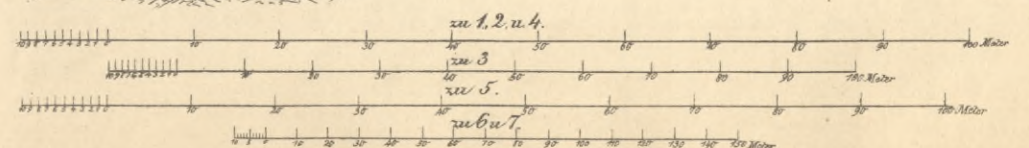 zu 1, 2. u. 4.
10 9 8 7 6 5 4 3 2 1 0 10 20 30 40 50 60 70 80 90 100 Meter
zu 3
10 9 8 7 6 5 4 3 2 1 0 10 20 30 40 50 60 70 80 90 100 Meter
zu 5.
10 9 8 7 6 5 4 3 2 1 0 10 20 30 40 50 60 70 80 90 100 Meter
zu 6 u 7.
10 5 0 10 20 30 40 50 60 70 80 90 100 110 120 130 140 150 Meter